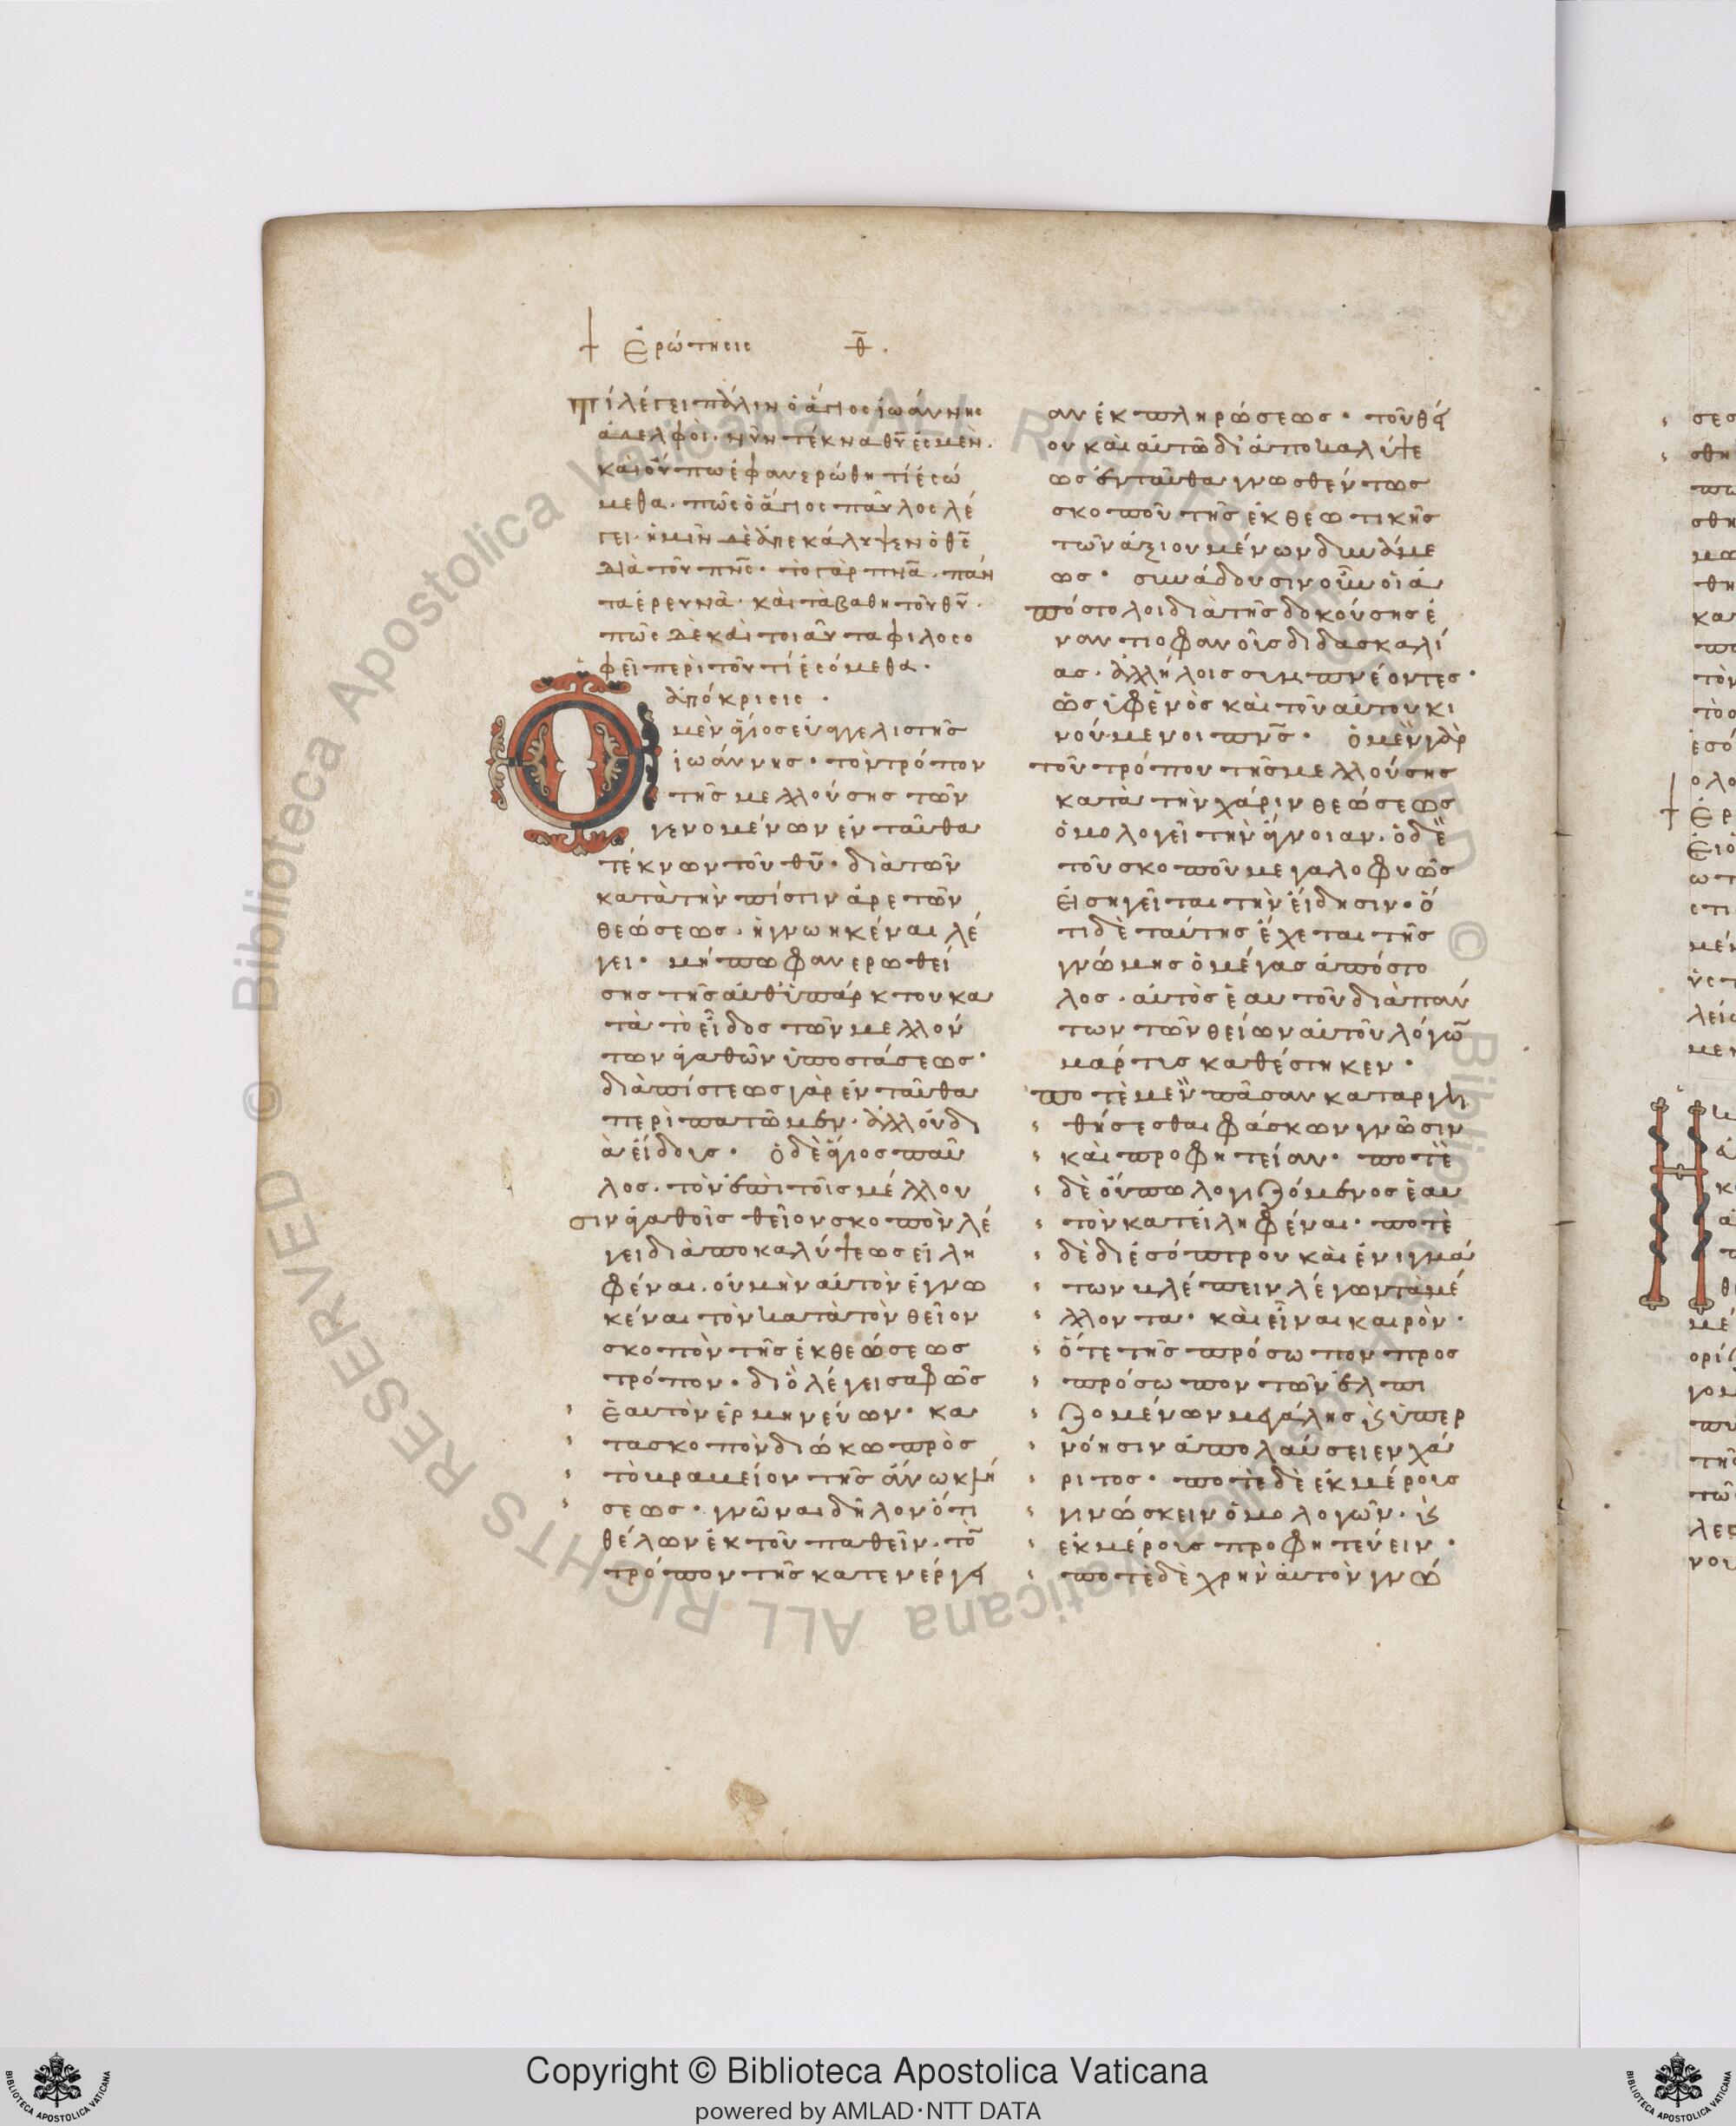 † Ἐρώτησις θ̅.
Τί λέγει πάλιν ὁ ἅγιος ἰωάννης
ἀδελφοὶ· νῦν τέκνα θῦ ἐσμὲν.
καὶ οὔπω ἐφανερώθη τί ἐσώ
μεθα. πῶς ὁ ἅγιος παῦλος λέ
γει· ἡμῖν δὲ ἀπεκάλυψεν ὁ θς̅
διὰ τοῦ πνς̅· τὸ γὰρ πνᾶ. πάν
τα ἐρευνᾶ· καὶ τὰ βαθη τοῦ θῦ.
πῶς δὲ καὶ τοιαῦτα φιλοσο
φεῖ περὶ τοῦ τί ἐσόμεθα.
ἀπόκρισις.
Ὁ μὲν ἅγιος εὐαγγελιστὴς
ἰωάννης· τὸν τρόπον
τῆς μελλούσης τῶν
γενομένων ἐνταῦθα
τέκνων τοῦ θῦ· διὰ τῶν
κατὰ τὴν πίστιν ἀρετῶν
θεώσεως. ἠγνωηκέναι λέ
γει· μήπω φανερωθεί
σης τῆς αὐθϋπάρκτου κα
τὰ τὸ εἶδος τῶν μελλόν
των ἀγαθῶν ὑποστάσεως·
διὰ πίστεως γὰρ ἐνταῦθα
περὶπατῶμεν. ἀλλ' οὐ δι
ὰ εἴδους· ὁ δὲ ἅγιος παῦ
λος. τὸν ἐπὶ τοῖς μέλλου
σιν ἀγαθοῖς θεῖον σκοπὸν λέ
γει δι' ἀποκαλύψεως εἰλη
φέναι. οὐ μὴν αὐτὸν ἐγνω
κέναι τὸν κατὰ τὸν θεῖον
σκοπὸν τῆς ἐκθεώσεως
τρόπον. διὸ λέγει σαφῶς
ἑαυτὸν ἑρμηνεύων· κα
τασκοπὸν διώκω πρὸς
τὸ βραβείον τῆς ἄνω κλή
σεως· γνῶναι δηλονότι
θέλων ἐκ τοῦ παθεῖν. τὸ̅
τρόπον τῆς κατενέργει
αν ἐκπληρώσεως· τοῦ θεί
ου καὶ αὐτῶ δι' ἀποκαλύψε
ως ἐνταῦθα γνωσθέντος
σκοποῦ τῆς ἐκθεωτικῆς
τῶν ἀξιουμένων δυνάμε
ως· συνάδουσιν οὖν οἱ ἀ
πόστολοι διὰ τῆς δοκούσης ἐ
ναντιοφανοῖς διδασκαλί
ας. ἀλλήλοις συμπνέοντες·
ὡς ὑφ' ἑνὸς καὶ τοῦ αὐτοῦ κι
νούμενοι πνς̅· ὁ μὲν γὰρ
τοῦ τρόπου τῆς μελλούσης
κατὰ τὴν χάριν θεώσεως
ὁμολογεῖ τὴν ἄγνοιαν. ὁ δὲ
τοῦ σκοποῦ μεγαλοφυῶς
εἰσηγεῖται τὴν εἴδησιν. ὅ
τι δὲ ταύτης ἔχεται τῆς
γνώμης ὁ μέγας ἀπόστο
λος. αὐτὸς ἑαυτοῦ διὰ παν
των τῶν θείων αὐτοῦ λόγω̅
μάρτυς καθέστηκεν·
ποτὲ μὲν πᾶσαν καταργη
θήσεσθαι φάσκων γνῶσιν
καὶ προφητείαν· ποτὲ
δὲ οὔπω λογιζόμενος ἑαυ
τὸν κατειληφέναι. ποτὲ
δὲ δι' ἐσόπτρου καὶ ἐνιγμά
των βλέπειν λέγων τὰ μέ
λλοντα· καὶ εἶναι καιρὸν·
ὅτε τῆς πρόσωπον προς
πρόσωπον τῶν ἐλπι
ζομένων μεγάλης κ ὑπερ
νόησιν ἀπολαύσειεν χά
ριτος· ποτὲ δὲ ἐκμέρους
γινώσκειν ὁμολογῶν. κ
ἐκμέρους προφητεύειν·
ποτὲ δὲ χρῆν αὐτὸν γνώ
Copyright © Biblioteca Apostolica Vaticana
powered by AMLAD·NTT DATA